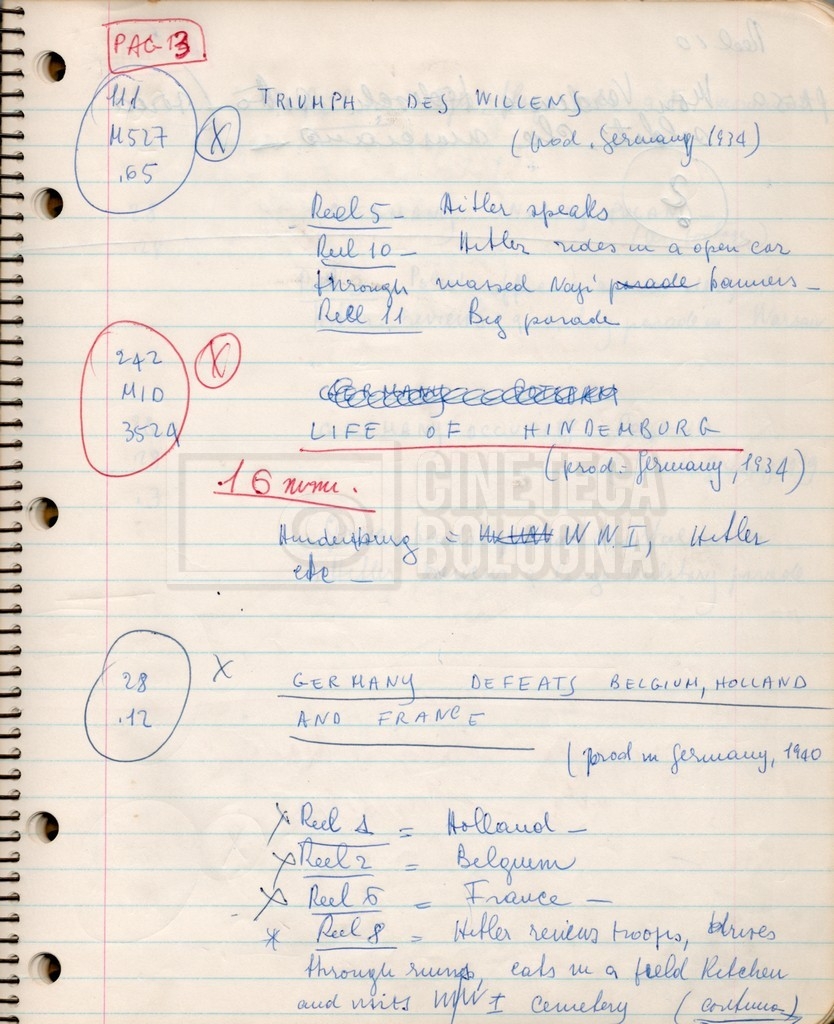 PAG 13
111
M527
.65
X
TRIUMPH DES WILLENS
(prod. Germany 1934)
Reel 5 - Hitler speaks
Reel 10 - Hitler rides in a open car
through massed Nazi parade banners -
Reel 11 Big parade
242
MID
X
3529
LIFE OF HINDEMBURG
(prod = Germany, 1934)
16 mm.
CINETECA
BOLOGNA
Hindenburg = W W. I, Hitler
etc -
28
.12
X
GERMANY DEFEATS BELGIUM, HOLLAND
AND FRANCE
(prod in Germany, 1940
X Reel 1 = Holland -
X Reel 2 = Belgium
X Reel 6 = France -
X Reel 8 = Hitler reviews troops, drives
through ruins, eats in a field Kitchen
and visits WW I cemetery (continua)